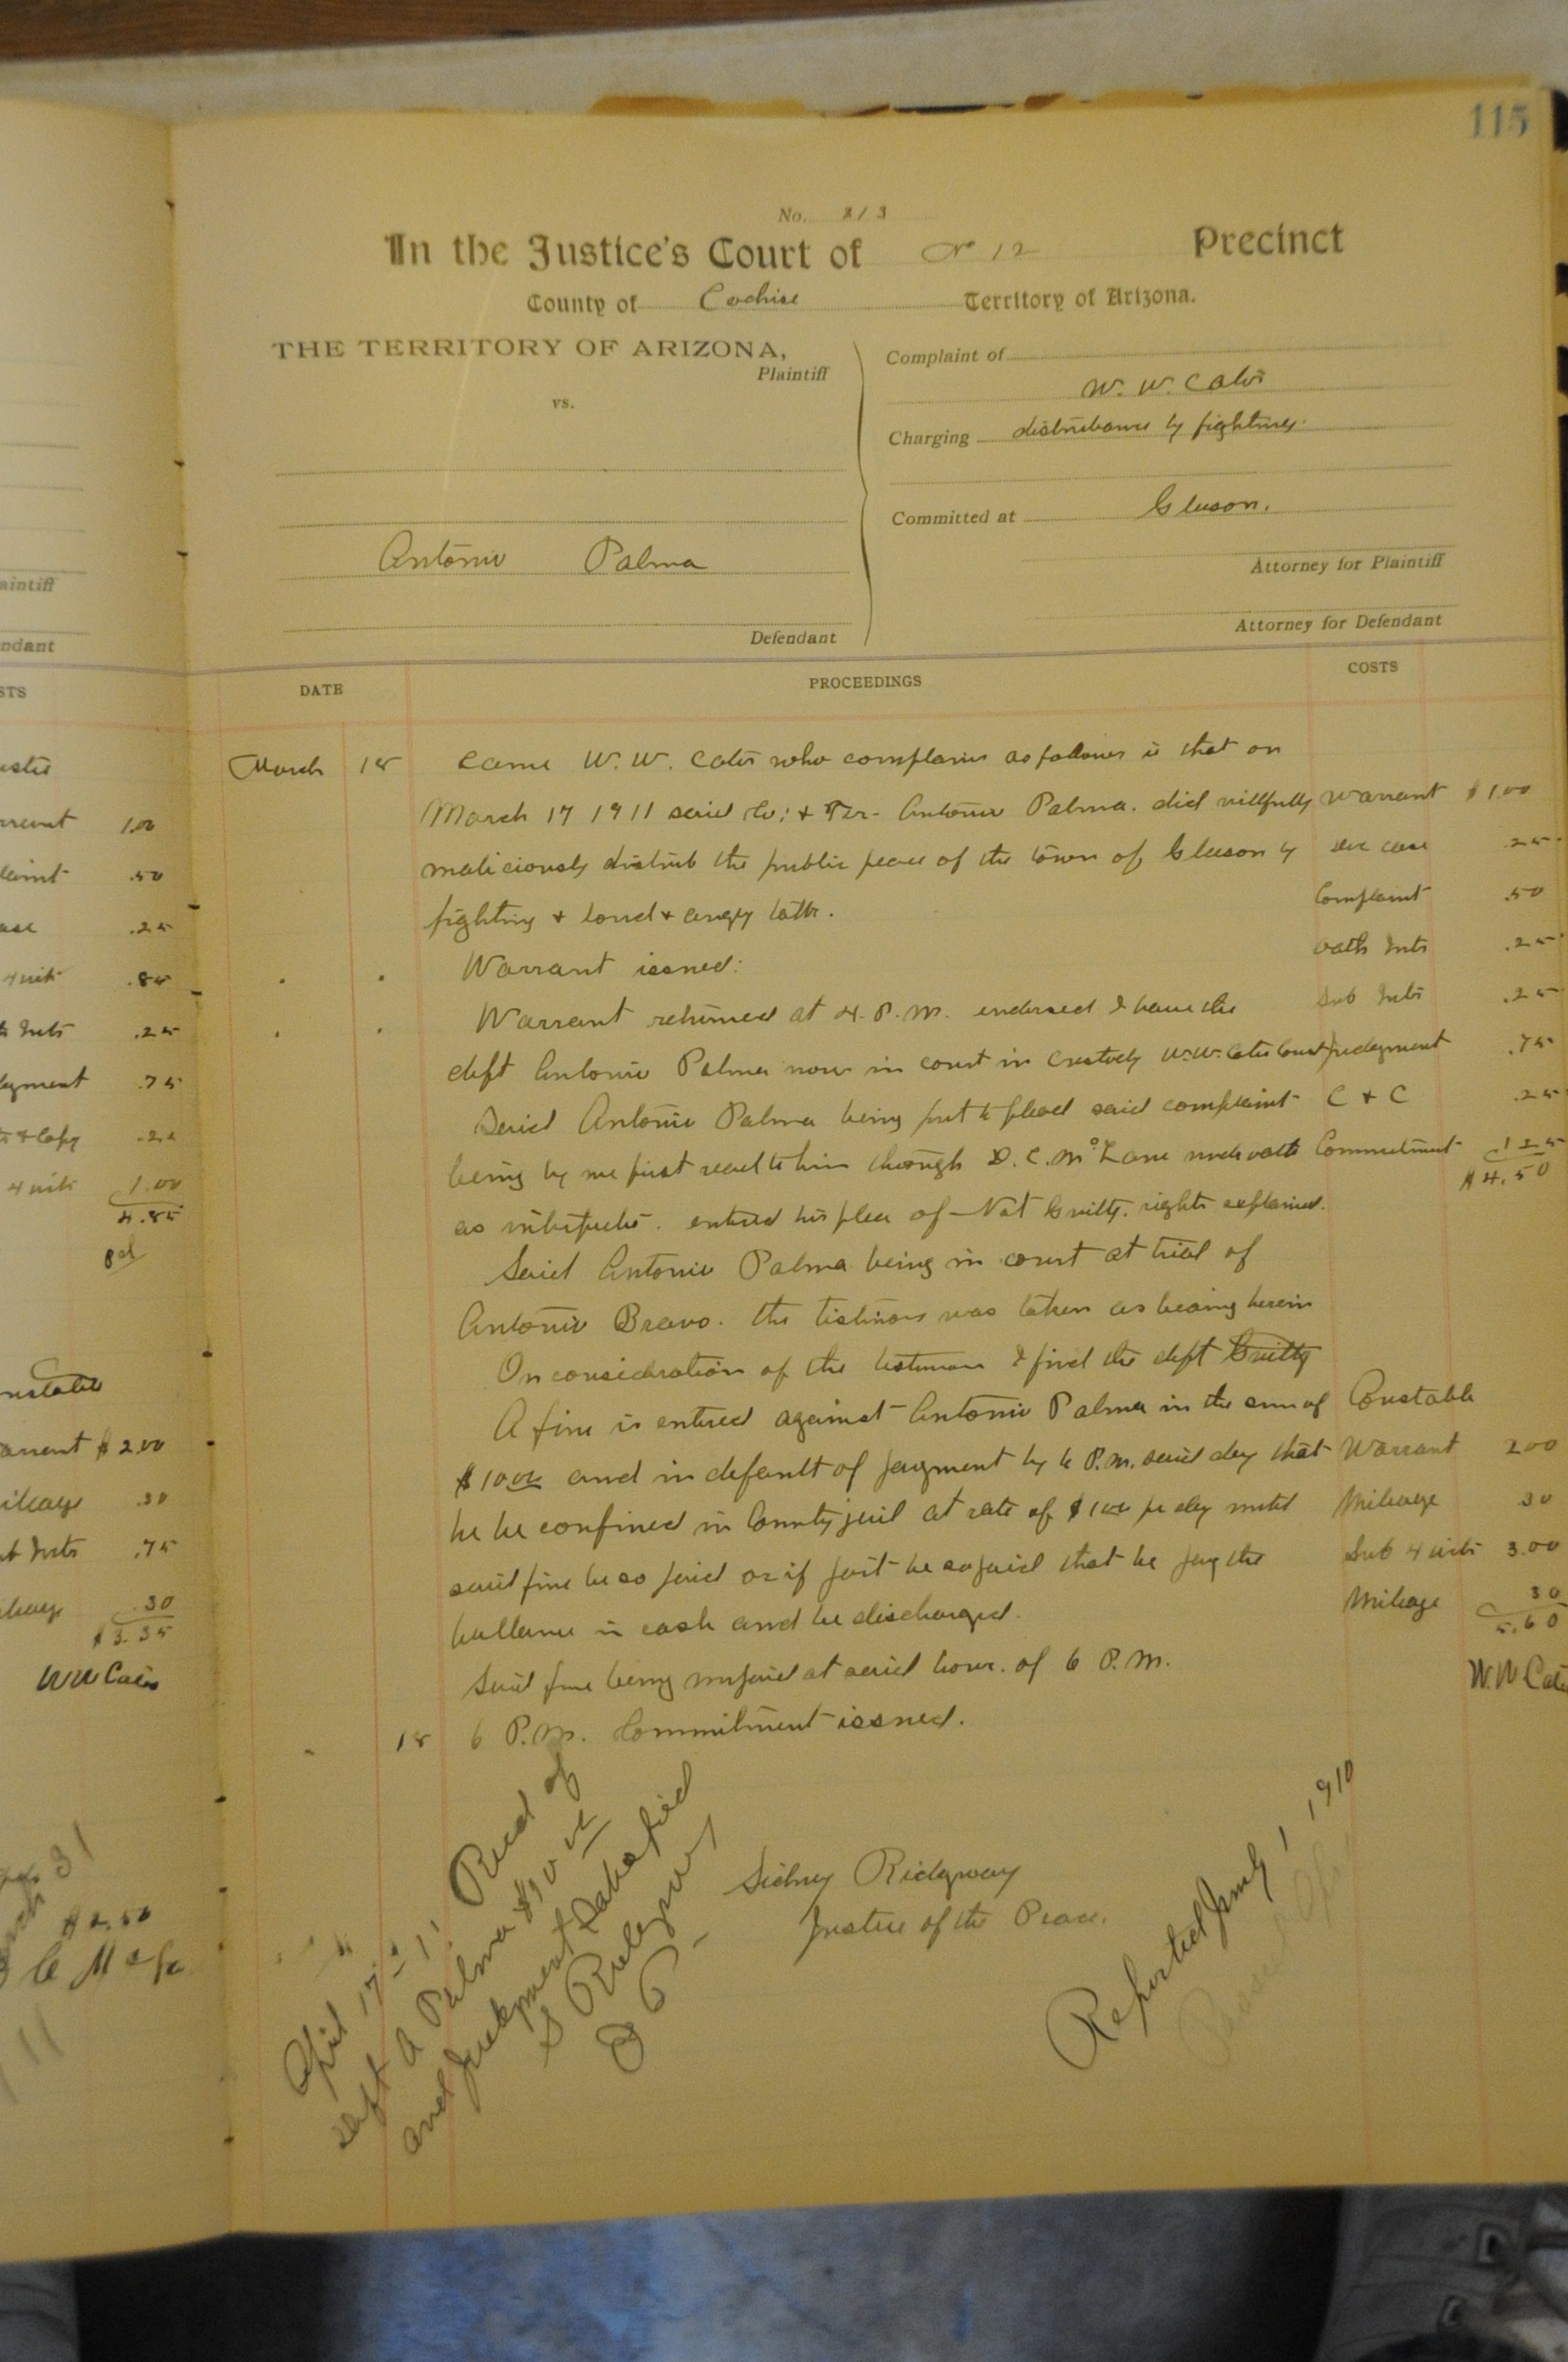 115
No. 213
In the Justice's Court of No 12 Precinct
County of Cochise Territory of Arizona.
THE TERRITORY OF ARIZONA,
Plaintiff
vs.
Antonio Palma
Defendant
Complaint of
W. W. Cates
Charging disturbance by fighting.
Committed at Gleeson.
Attorney for Plaintiff
Attorney for Defendant
DATE PROCEEDINGS COSTS
March 18 Came W. W. Cates who complains as follows is that on
March 17 1911 said Co; & Ter- Antonio Palma. did willfully
maliciously distrub the public peace of the town of Gleeson by
fighting & loud & angry talk.
Warrant issued:
Warrant returned at 4. P.M. endorsed I have the
deft Antonio Palma now in court in custody W.W. Cates Const
Said Antonio Palma being put to plead said complaint
being by me first read to him through D. C. McLane under oath
as interpreter. entered his plea of Not Guilty. rights explained.
Said Antonio Palma being in court at trial of
Antonio Bravo. the was taken as hearing herein
On consideration of the I find the deft Guilty
A fine is entered against Antonio Palma in the sum of
$10 00 and in default of payment by 6 P.M. said day that
he be confined in County jail at rate of $1 00 per day until
said fine be so paid or if part be so paid that he pay the
ballance in cash and be discharged.
Said fine being unpaid at said hour. of 6 P.M.
18 6 P.M. Commitment issued.
Warrant $1.00
.25
Complaint .50
oath .25
Sub .25
Judgment .75
C & C .25
Commitment 1 25
$4.50
Constable
Warrant 2 00
Mileage 30
Sub 4 wits 3.00
Mileage 30
5.60
W. W Cates
Sidney Ridgway
Justice of the Peace.
April 17 11 Recd of
deft A Palma $10
and Judgment Satisfied
S Ridgway
J P
Reported July 1 1910
aintiff
ndant
STS
1.00
.50
.25
4 wits .85
.25
.75
& Copy
4 wits 1.00
4.85
pd
$2.00
.30
.75
.30
$3.35
W W Cates
31
$2.50
11